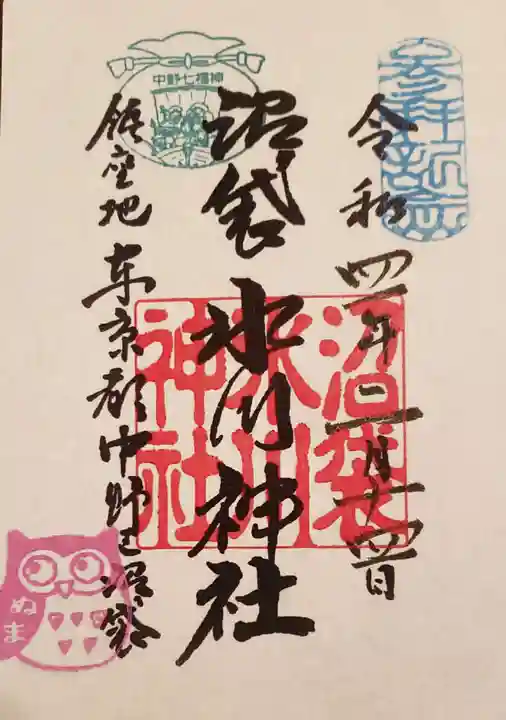 参拝記念
令和四年二月十四日
沼袋氷川神社
沼袋氷川神社
中野七福神
鎮座地 東京都中野区沼袋
ぬま